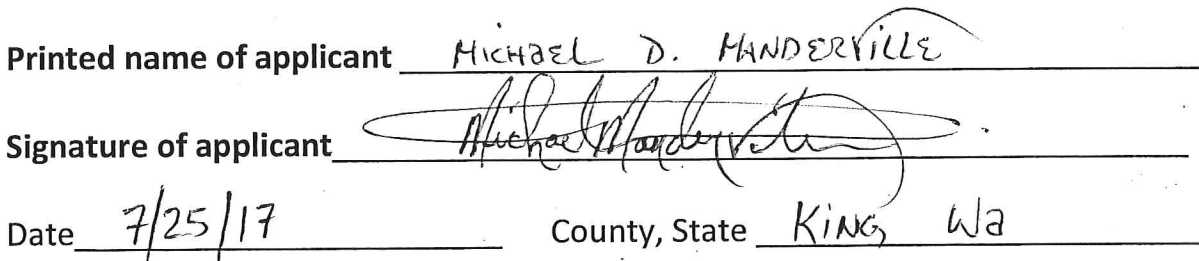 Printed name of applicant MICHAEL D. MANDERVILLE
Signature of applicant Michael Manderville
Date 7/25/17 County, State KING, Wa